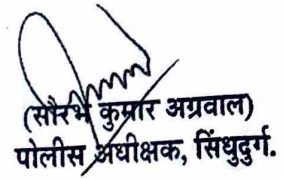 (सौरभ कुमार अग्रवाल)
पोलीस अधीक्षक, सिंधुदुर्ग.